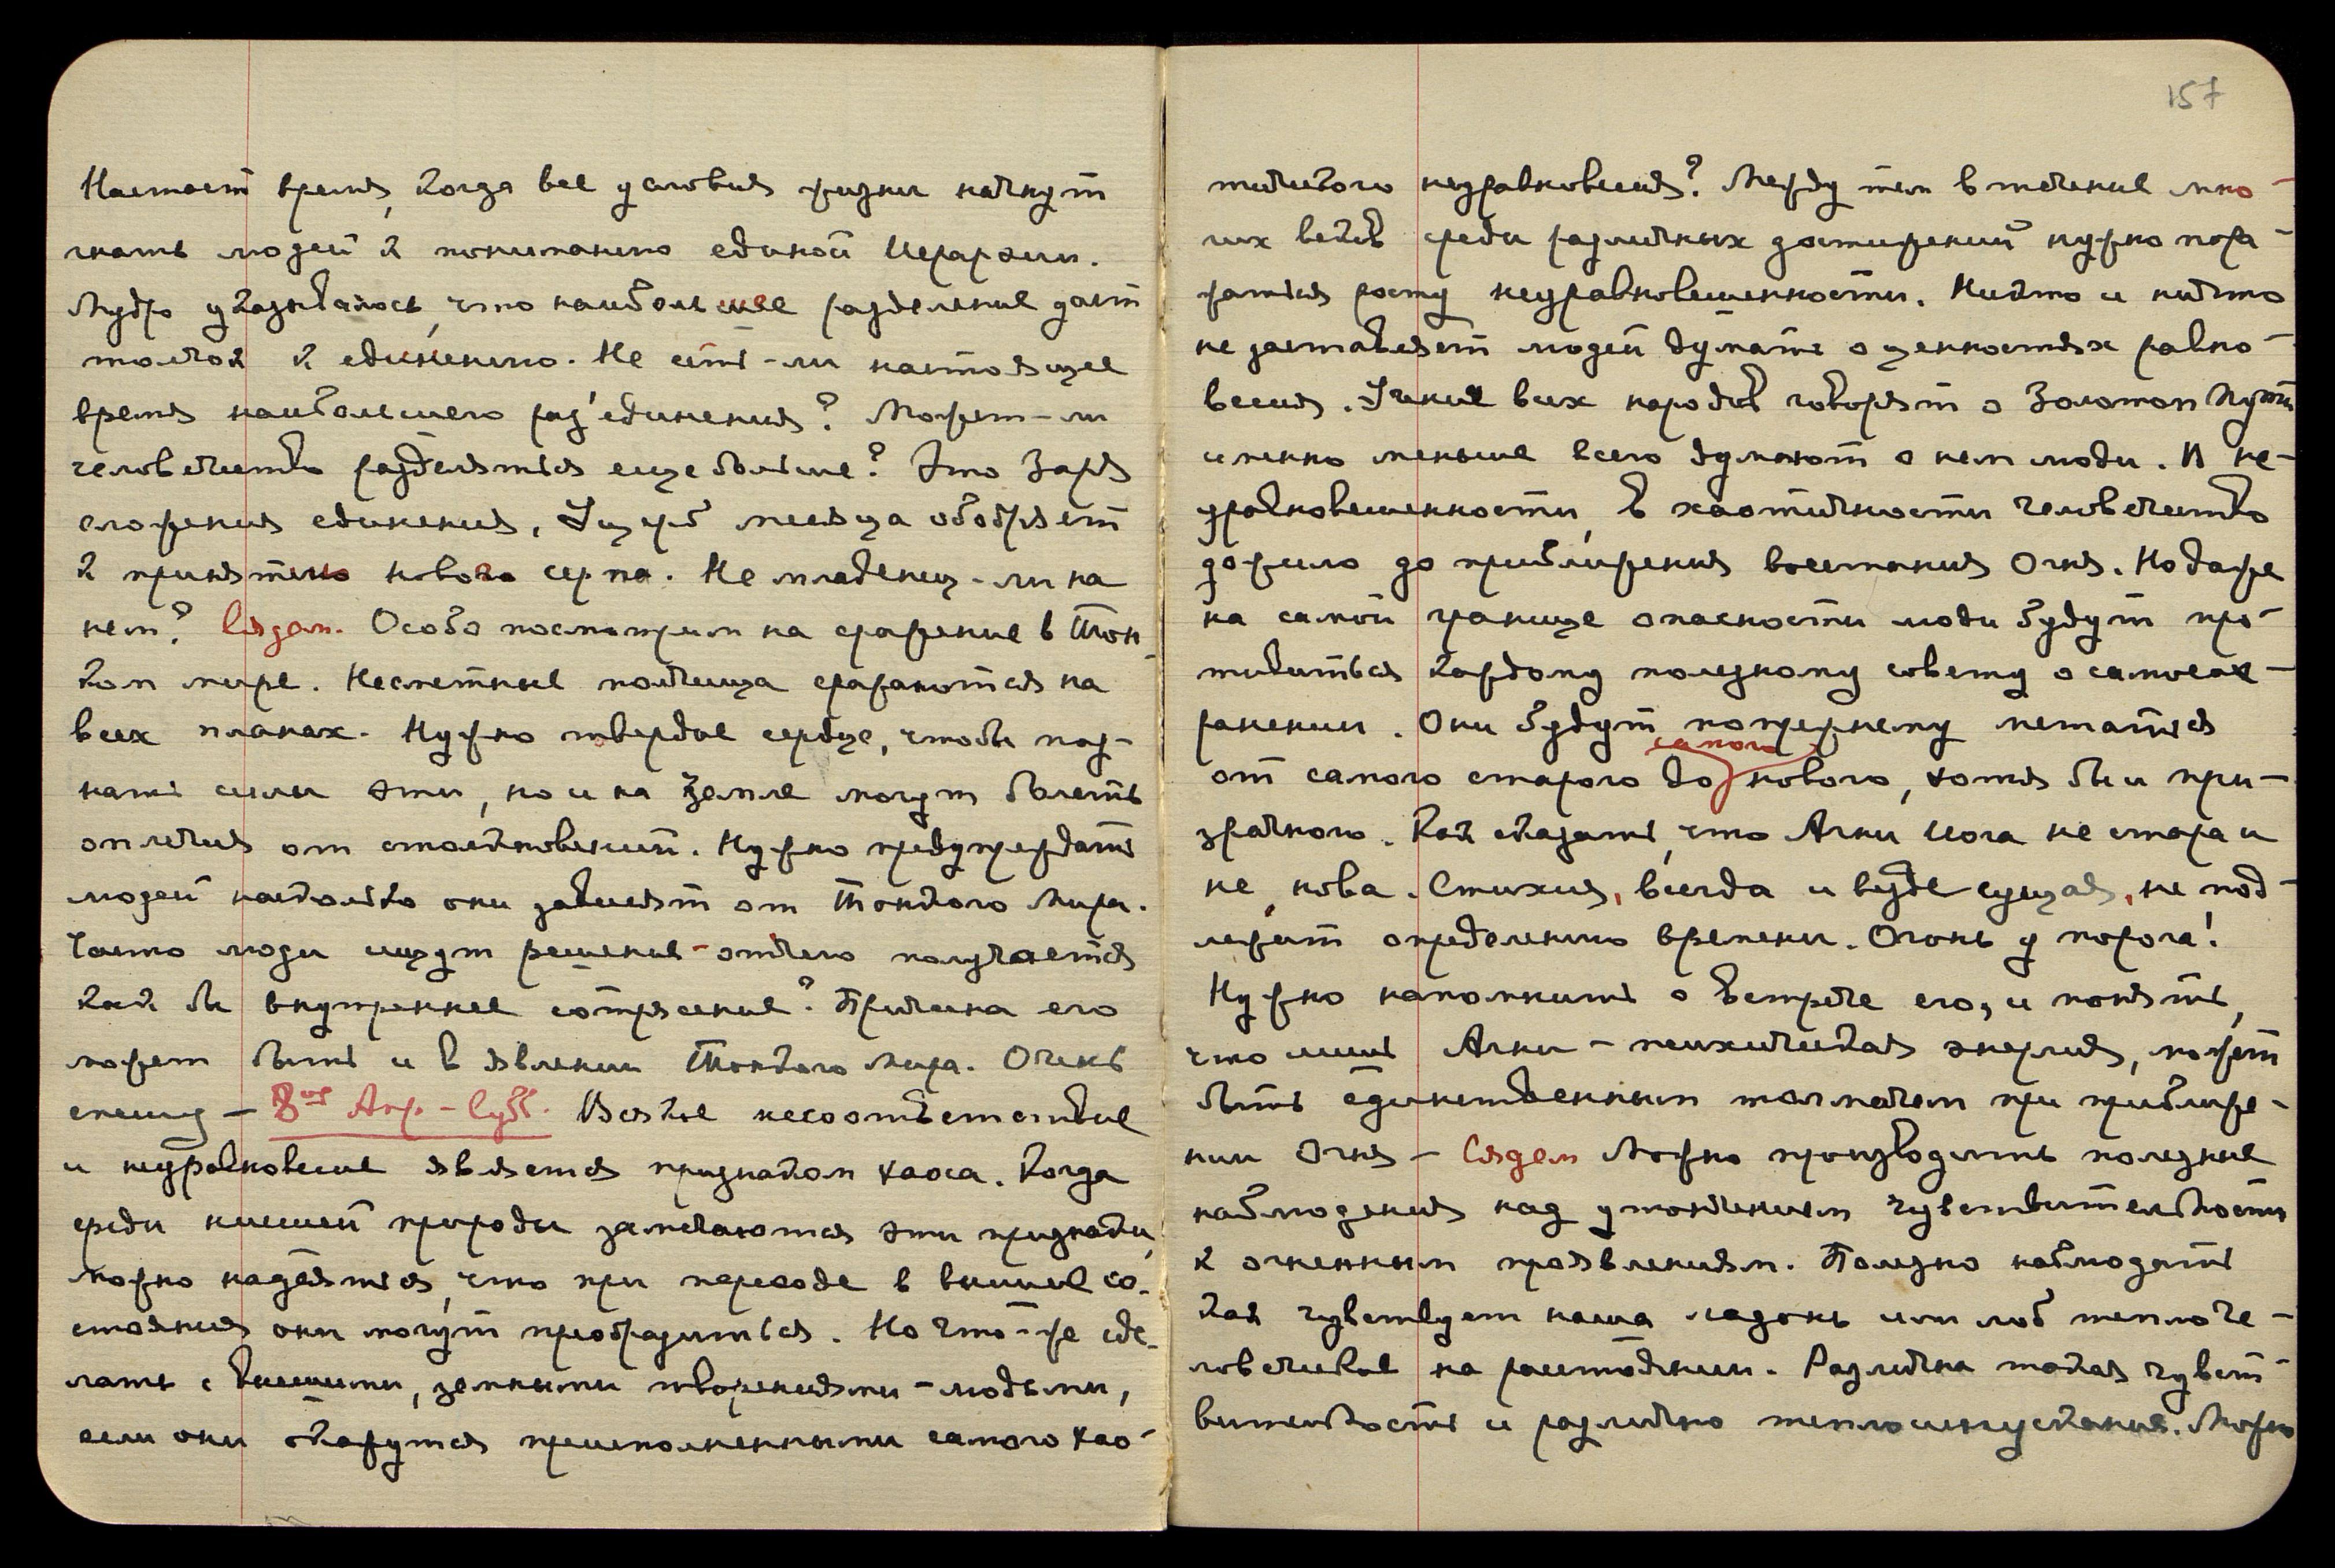 Настает время, когда все условия жизни начнут
гнать людей к пониманию единой Иерархии.
Мудро указывалось, что наибольшее разделение дает
толчок к единению. Не есть-ли настоящее
время наибольшего раз'единения? Может-ли
человечество разделяться еще больше? Это Заря
сложения единения, Ущерб месяца ободряет
к принятию нового серпа. Не младенец-ли на
нем? Сядем. Особо посмотрим на сражение в Тон-
ком мире. Несметные полчища сражаются на
всех планах. Нужно твердое сердце, чтобы поз-
нать силы эти, но и на Земле могут болеть
оплечия от столкновений. Нужно предупреждать
людей насколько они зависят от Тонкого Мира.
Часто люди ищут решение – отчего получается
как бы внутреннее сотрясение? Причина его
может быть и в явлении Тонкого Мира. Очень
спешу – 8ое Апр. – Субб. Всякое несоответствие
и неуравновесие является признаком хаоса. Когда
среди низшей природы замечаются эти признаки,
можно надеяться, что при переходе в высшие со-
стояния они могут преобразиться. Но что-же сде-
лать с высшими, земными творениями – людьми,
если они окажутся преисполненными самого хао-
157
тического неуравновесия? Между тем в течение мно-
гих веков среди различных достижений нужно пора-
жаться росту неуравновешенности. Никто и ничто
не заставляет людей думать о ценностях равно-
весия. Учения всех народов говорят о Золотом Пути
именно меньше всего думают о нем люди. В не-
уравновешенности, в хаотичности человечество
дожило до приближения восстания Огня. Но даже
на самой границе опасности люди будут про-
тивиться каждому полезному совету о самосох-
ранении. Они будут попрежнему метаться
от самого старого до самого нового, хотя бы и при-
зрачного. Как сказать, что Агни Йога не стара и
не нова. Стихия, всегда и везде сущая, не под-
лежит определению времени. Огонь у порога!
Нужно напомнить о встрече его, и понять,
что лишь Агни – психическая энергия, может
быть единственным толмачом при приближе-
нии Огня – Сядем Можно производить полезные
наблюдения над утончением чувствительности
к огненным проявлениям. Полезно наблюдать
как чувствует наша ладонь или лоб тепло че-
ловеческое на расстоянии. Различна такая чувст-
вительность и различно теплоиспускание. Можно